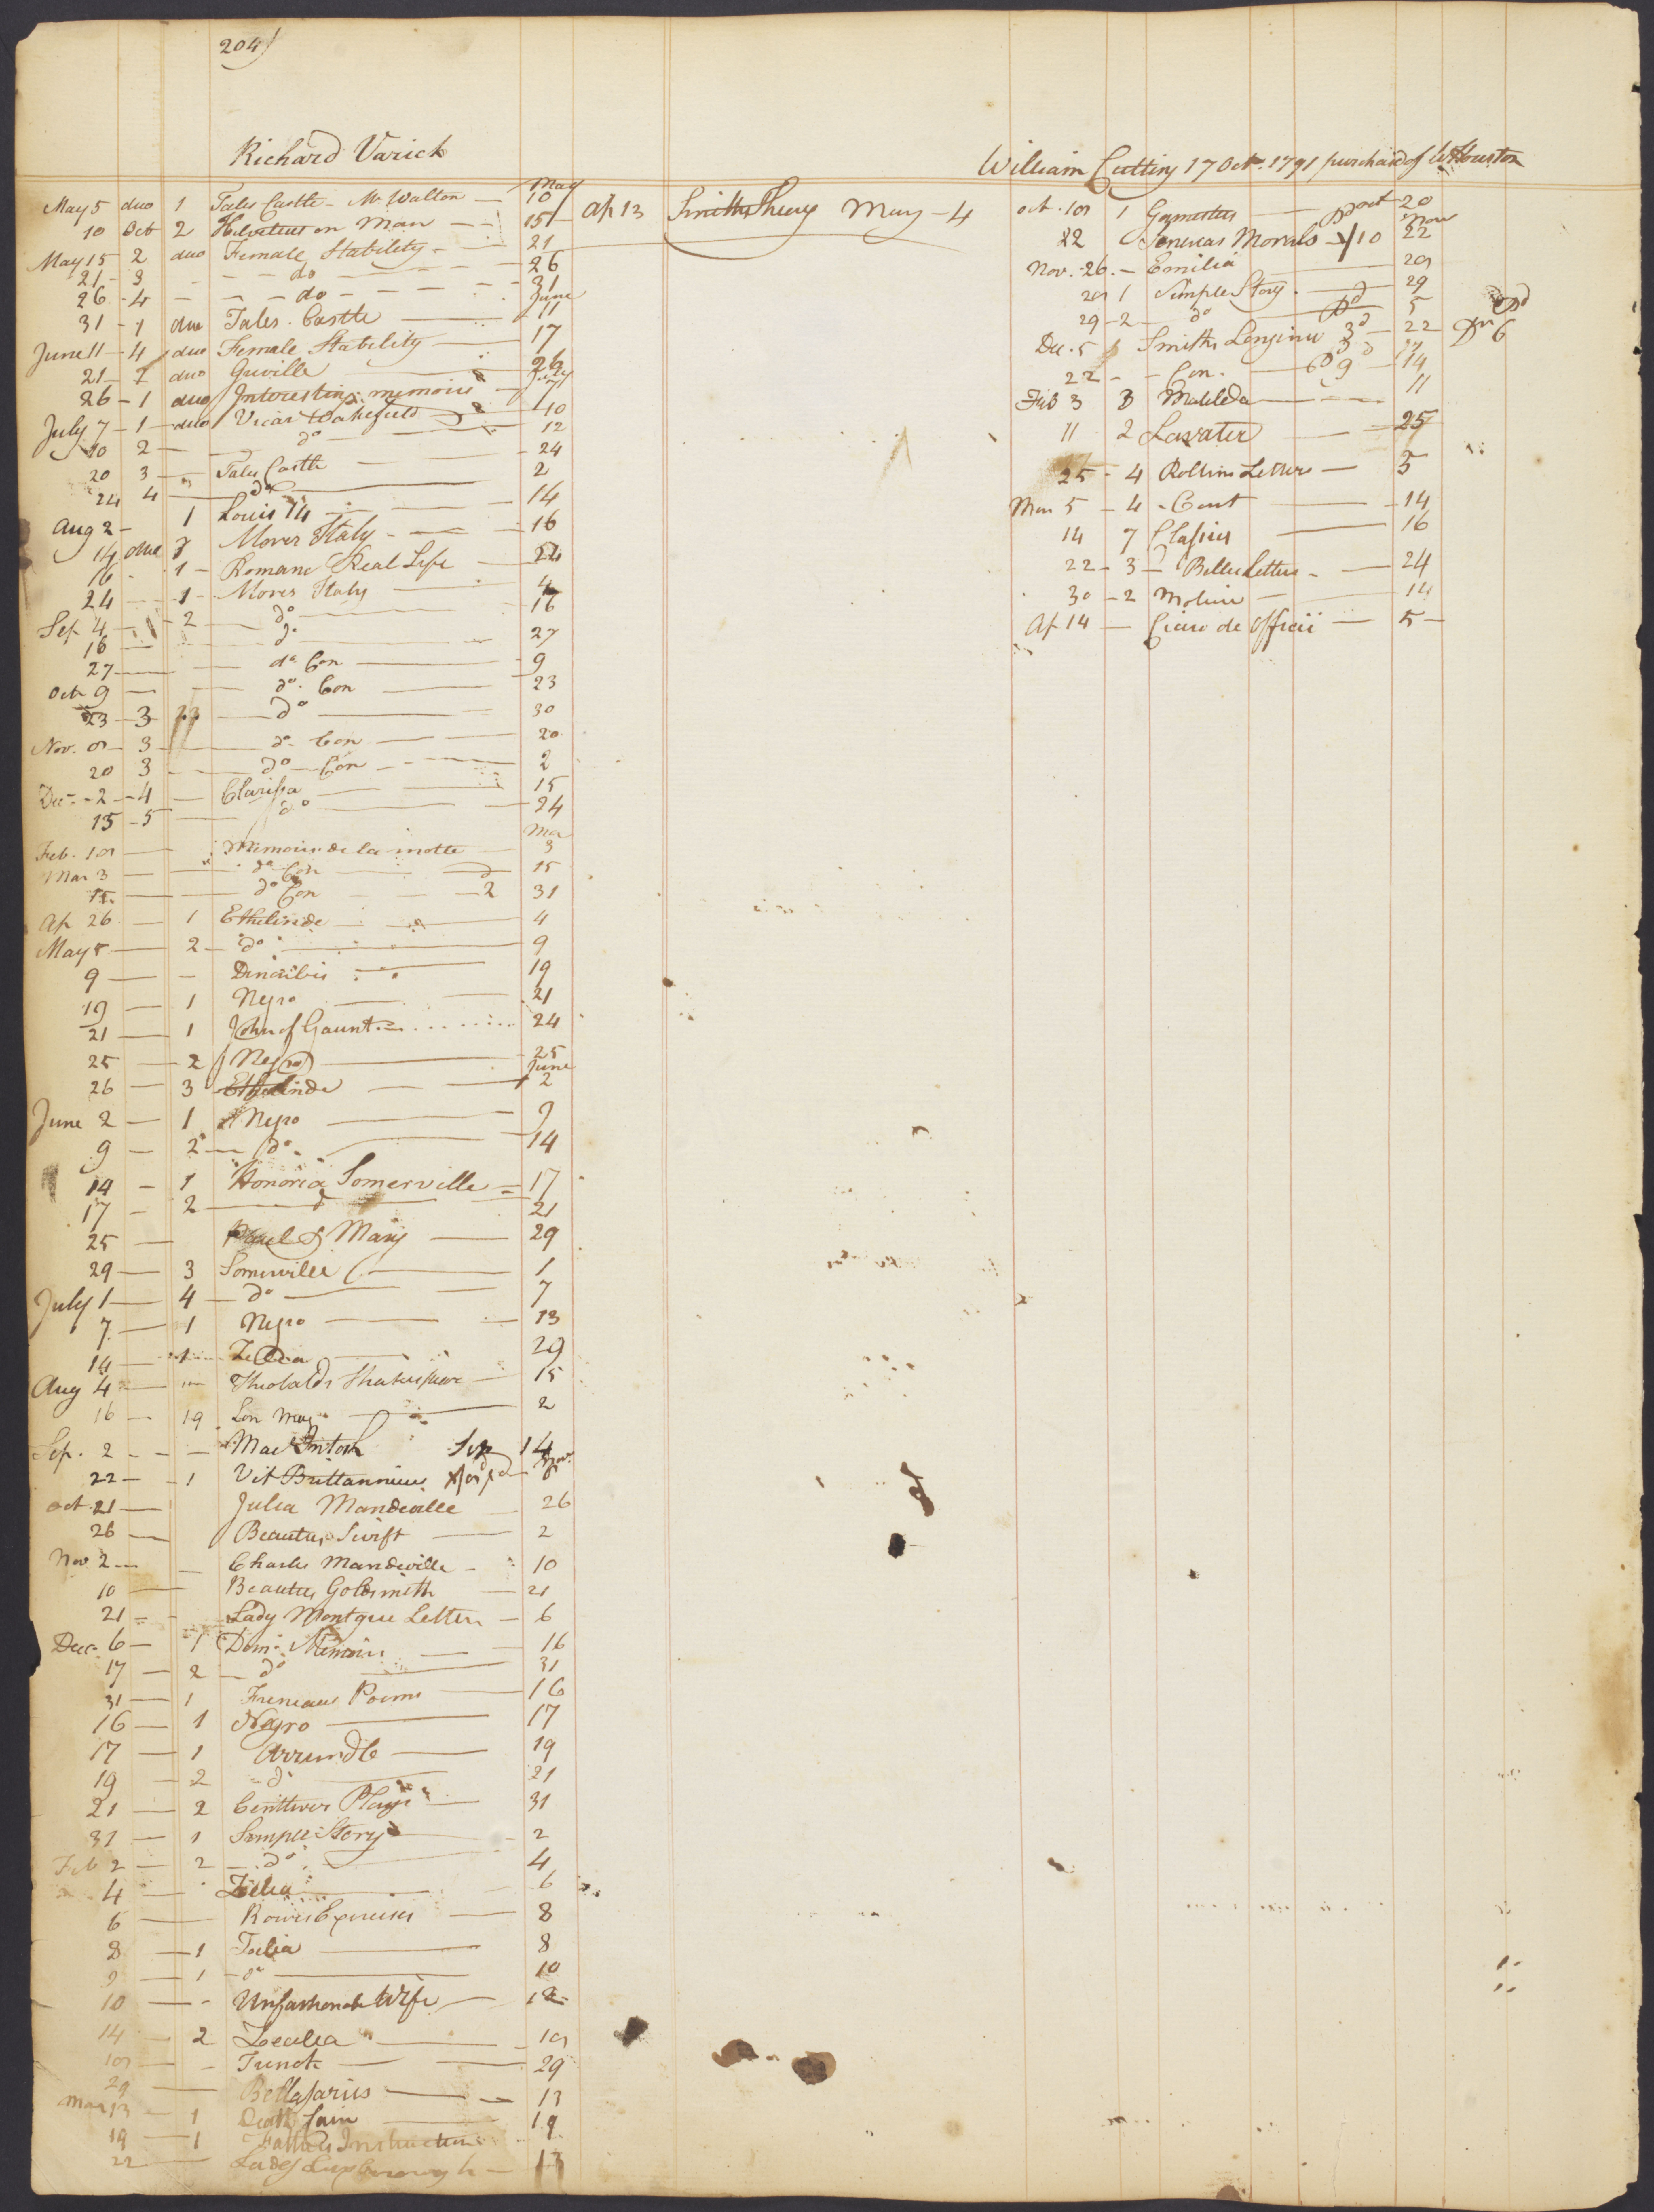 204
Richard Varick
May
May 5 duo 1 Tales Castle - Mr Walton - 10
10 Oct 2 Helvetius on Man - - 15
May 15 2 duo Female Stability - 21
21 - 3 - - do - - - 26
26 - 4 - - - do - - - - 31
June
31 - 1 duo Tales Castle - 11
June 11 - 4 duo Female Stability - 17
21 - duo Greville - 26
July
26 - 1 duo Interesting memoirs - 7
July 7 - 1 - duo Vicar Wakefield - 10
10 2 - do - 12
20 3 - Tales Castle - 24
24 4 - do - 2
Aug 2 - 1 Louis 14 - 14
14 duo Mores Italy - - 16
16 1 - Romance Real Life - 24
24 - 1 - Mores Italy - 4
Sep 4 - 2 - do - 16
16 - do - 27
27 - do Con - 9
Oct 9 - do Con - 23
23 - 3 - do - 30
Nov. 9 - 3 - do Con - 20
20 3 - do - Con - 2
Dec - 2 - 4 - Clarissa - 15
15 - 5 - do - 24
Mar
Feb. 19 - Memoirs de la motte - 3
Mar 3 - do Con - 15
15 - do Con - 2 31
Ap 26 - 1 Ethelinde - 4
May 5 - 2 - do - 9
9 - - Dinarbis - 19
19 - 1 Negro - 21
21 - 1 John of Gaunt - 24
25 - 2 Negro - 25
June
26 - 3 Ethelinde - 2
June 2 - 1 Negro - 9
9 - 2 - do - 14
14 - 1 Honoria Somerville - 17
17 - 2 - d - 21
25 - Paul & Mary - 29
29 - 3 Somerville - 1
July 1 - 4 - do - 7
7 - 1 Negro - 13
14 - 1 - Zelia - 29
Aug 4 - Theobalds Shakespear - 15
16 - 19 Lon Mag - 2
Sep. 2 - - - MacIntosh Sep 14
22 - - 1 Vit Brittannicus
Oct 21 - Julia Mandeville - 26
26 - Beauties Swift - 2
Nov 2 - Charles Mandeville - 10
10 - Beauties Goldsmith - 21
21 - - Lady Montgue Letters - 6
Dec. 6 - 1 Dom. Memoirs - 16
17 - 2 - do - 31
31 - 1 Freneaus Poems - 16
16 - 1 Negro - 17
17 - 1 Arrundle - 19
19 - 2 - do - 21
21 - 2 Centlivers Plays - 31
31 - 1 Simple Story - 2
Feb 2 - 2 - do - 4
4 - Zelia - 6
6 - Rowes Exercises - 8
8 - 1 Julia - 8
9 - 1 - do - 10
10 - - Unfashonab Wife - 12
14 - 2 Zealia - 19
19 - - Trenck - 29
29 - Bellasarius - 13
Mar 13 - 1 - 19
19 - 1 Fathers Instructions
22 - Lady Luxborough - 13
Ap 13 Smiths Theory May - 4
William Cutting 17 Oct. 1791 purchasd of W Houston
Oct. 19 1 Gamesters - pd oct 20
Nov
22 Senecas Morals - 1/10 22
Nov. 26. - Emilia - 29
29 1 Simple Story - 29
29 - 2 - do - pd 5
Dec. 5 1 Smiths Longinus 3d - 22 6
22 - - Con. - 14
Feb 3 3 Matilda - 11
11 2 Lavater - 25
25 - 4 Rollins Letters - 5
Mar 5 - 4 - Cont - 14
14 7 Classics - 16
22 - 3 - Belles Letters - 24
30 - 2 Moliere - 14
Ap 14 - Cicero de officii - 5 -